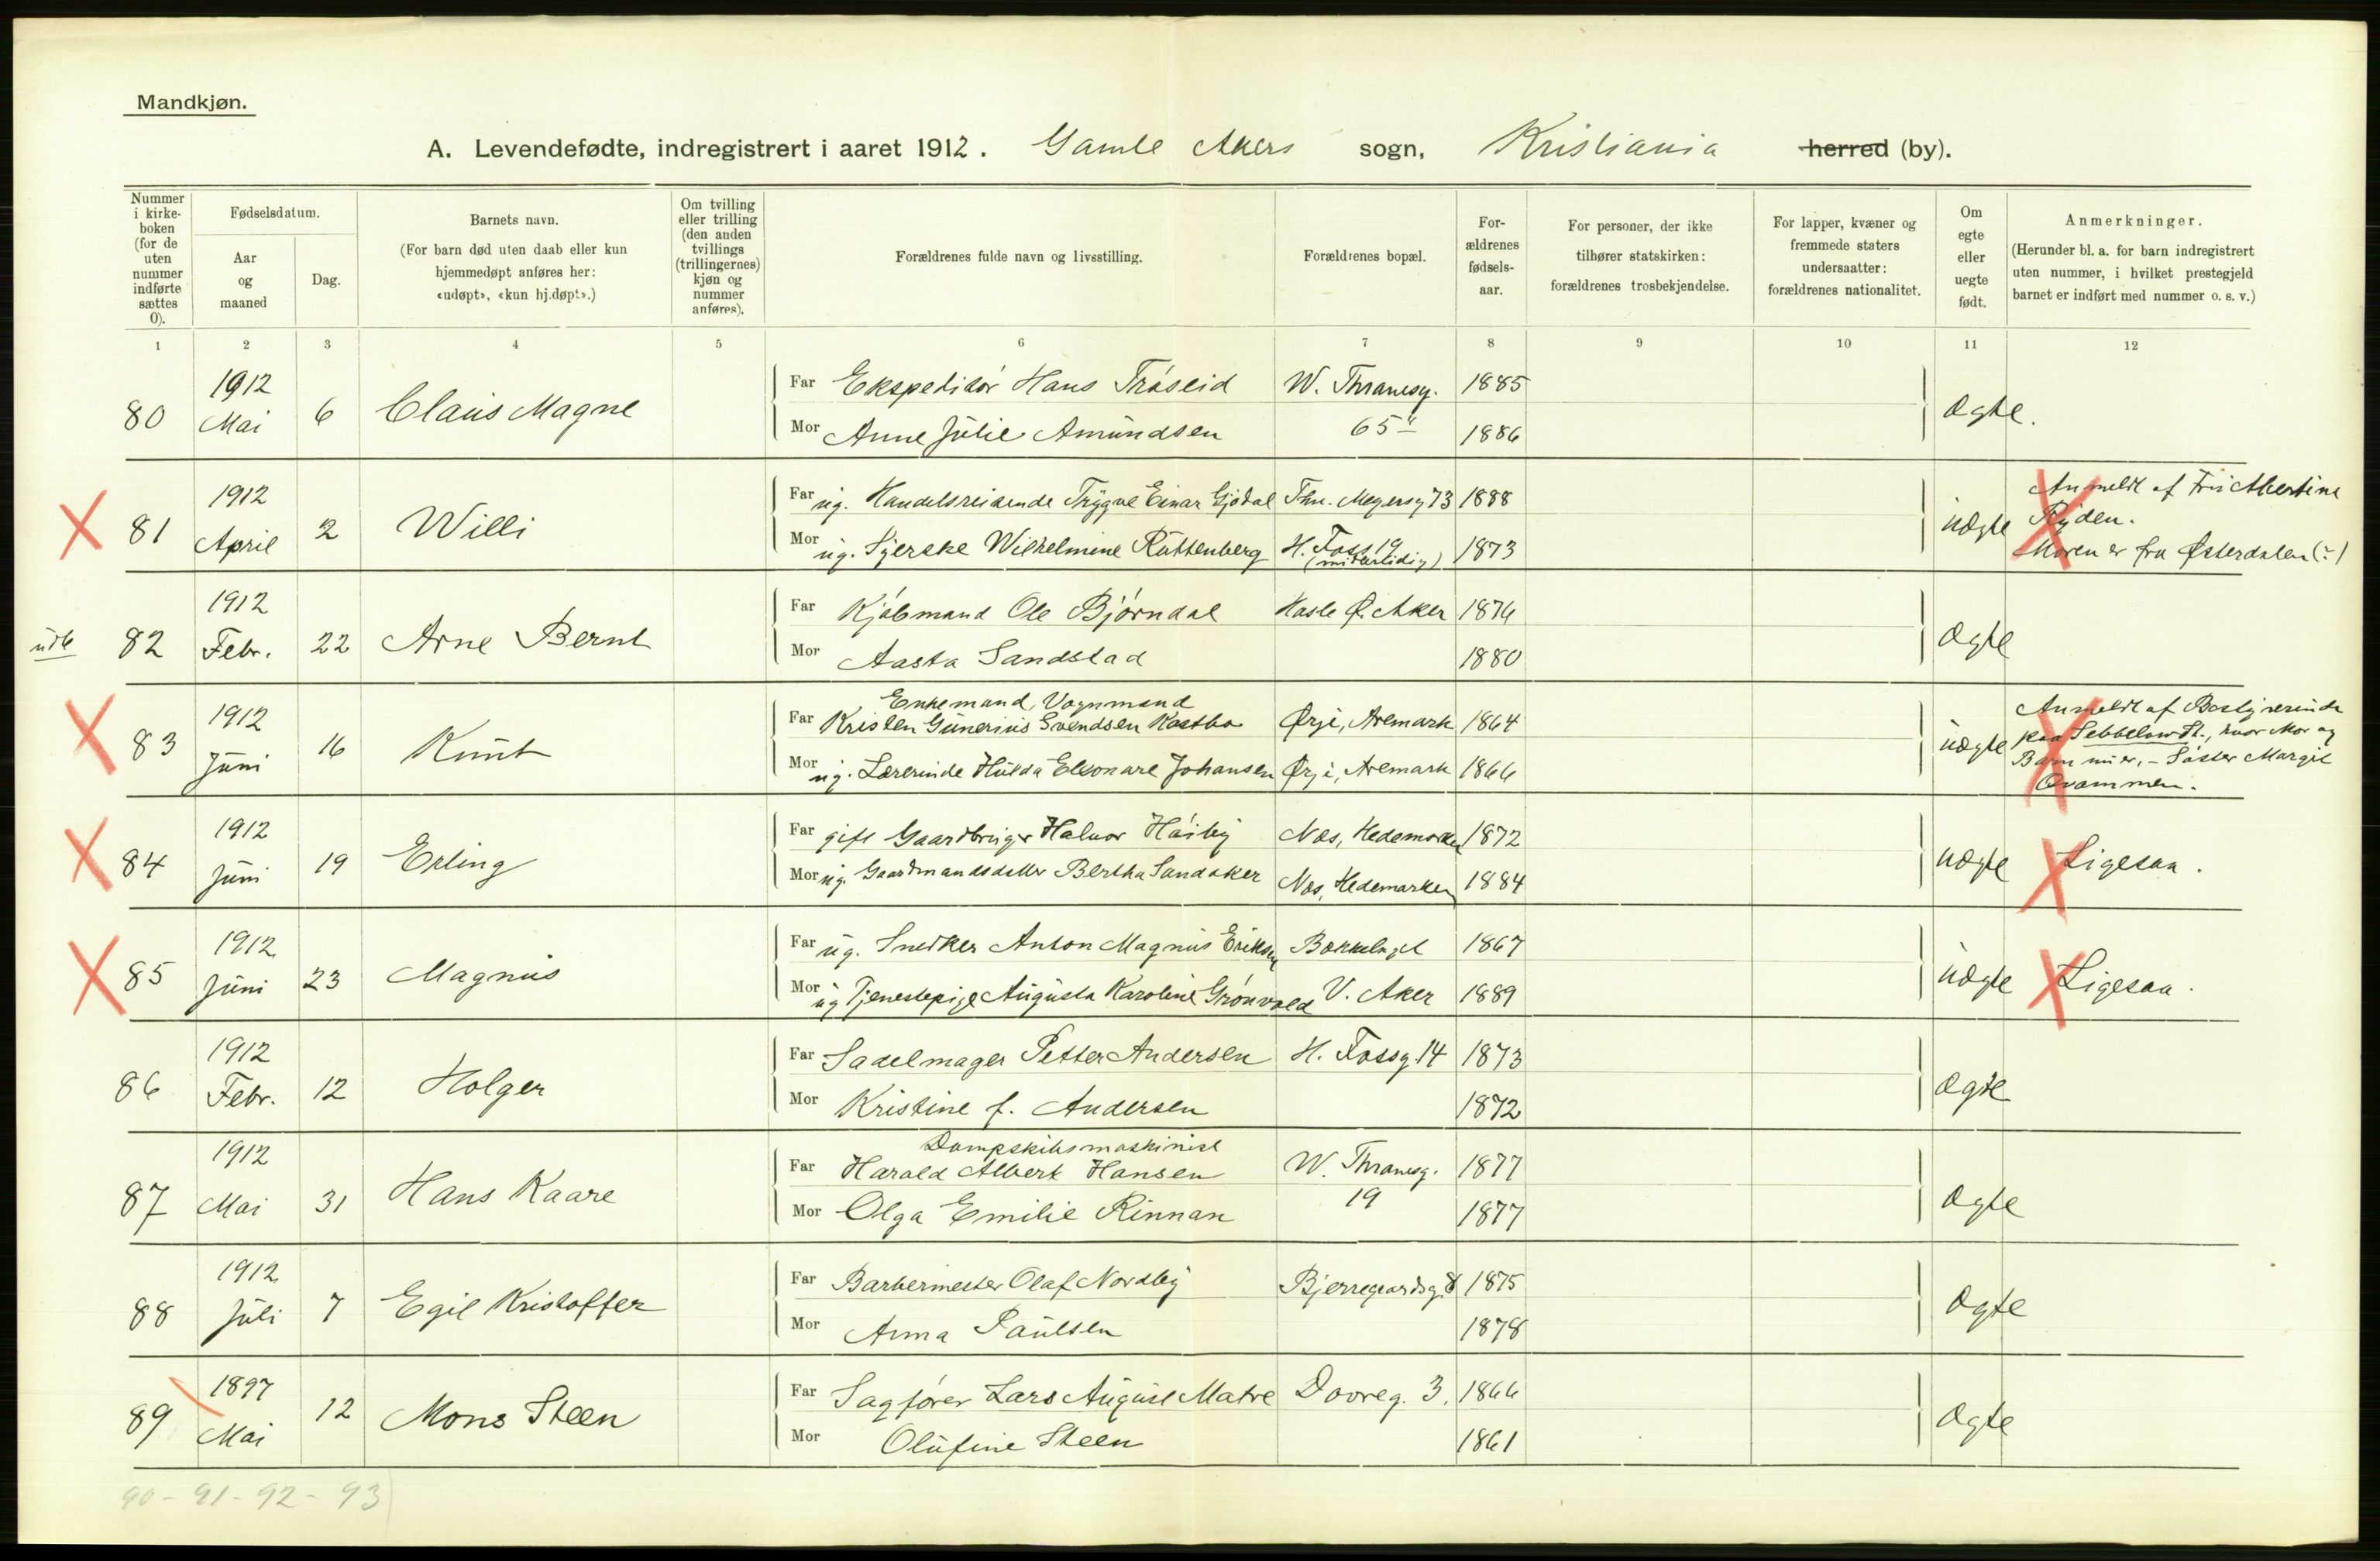 Mandkjøn.
A. Levendefødte, indregistrert i aaret 1912. Gamle Akers sogn, Kristiania herred (by).
Nummer i kirkeboken (for de uten nummer indførte sættes 0).
Fødselsdatum.
Aar og maaned
Dag.
Barnets navn.
(For barn død uten daab eller kun hjemmedøpt anføres her: «udøpt», «kun hj.døpt».)
Om tvilling eller trilling (den anden tvillings (trillingernes) kjøn og nummer anføres).
Forældrenes fulde navn og livsstilling.
Forældrenes bopæl.
For-ældrenes fødsels-aar.
For personer, der ikke tilhører statskirken: forældrenes trosbekjendelse.
For lapper, kvæner og fremmede staters undersaatter: forældrenes nationalitet.
Om egte eller uegte født.
Anmerkninger.
(Herunder bl. a. for barn indregistrert uten nummer, i hvilket prestegjeld barnet er indført med nummer o. s. v.)
1 2 3 4 5 6 7 8 9 10 11 12
80 1912 Mai 6 Claus Magne
Far Ekspeditør Hans Trøseid W. Thranesg. 1885
Mor Anne Julie Amundsen 65 1886
Ægte.
81 1912 April 2 Willi
Far ug. Handelsreisende Trygve Einar Gjødal Thv. Meyersg 73 1888
Mor ug. Syerske Wilhelmine Ruttenberg H. Foss 19 (midlertidig) 1873
Uægte
Anmeldt af Fru Albertine
Ryden.
Moren er fra Østerdalen (?)
ude 82 1912 Febr. 22 Arne Bernt
Far Kjøbmand Ole Bjørndal Hasle Ø. Aker 1876
Mor Aasta Sandstad 1880
Ægte
83 1912 Juni 16 Knut
Enkemand, Vognmand
Far Kristen Gunerius Svendsen Kastbo Ørje, Aremark 1864
Mor ug. Lærerinde Hulda Eleonare Johansen Ørje, Aremark 1866
Uægte
Anmeldt af Bestyrerinde
paa Sebbelows St., hvor Mor og
Barn nu er, - Søster Margit
Qvammen.
84 1912 Juni 19 Erling
Far gift Gaardbruger Halvor Høiby Næs, Hedemarken 1872
Mor ug. Gaardmandsdatter Bertha Sandaker Næs, Hedemarken 1884
Uægte Ligesaa.
85 1912 Juni 23 Magnus
Far ug. Snedker Anton Magnus Eriksen Bækkelaget 1867
Mor ug Tjenestepige Augusta Karoline Grønvold V. Aker 1889
Uægte Ligesaa.
86 1912 Febr. 12 Holger
Far Sadelmager Petter Andersen H. Fossg. 14 1873
Mor Kristine f. Andersen 1872
Ægte
87 1912 Mai 31 Hans Kaare
Dampskibsmaskinist
Far Harald Albert Hansen W. Thranesg. 1877
Mor Olga Emilie Rinnan 19 1877
Ægte
88 1912 Juli 7 Egil Kristoffer
Far Barbermester Olaf Nordby Bjerregaardsg. 8 1875
Mor Anna Paulsen 1878
Ægte
89 1897 Mai 12 Mons Steen
Far Sagfører Lars August Matre Dovreg. 3. 1866
Mor Olufine Steen 1861
Ægte
90 - 91 - 92 - 93